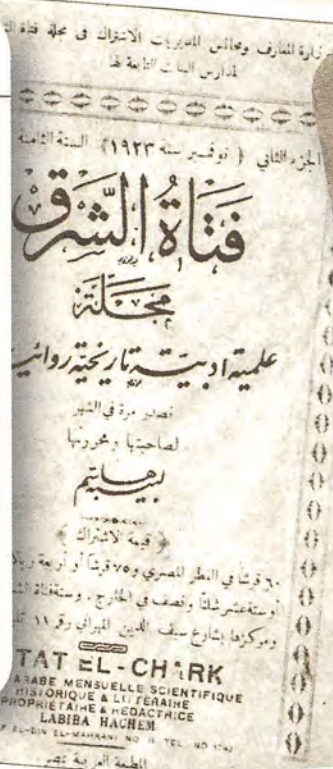 وزارة المعارف ومجالس المديريات الاشتراك في مجلة فتاة
لمدارس البنات التابعة لها
الجزء الثاني ( نوفمبر سنة ١٩٢٣) السنة الثامنة
فتاة الشرق
مجلة
علمية ادبية تاريخية
تصدر مرة في الشهر
لصاحبتها ومحررتها
لبيبة هاشم
قيمة الاشتراك
٦٠ قرشا في القطر المصري و٧٥ قرشا أو أربعة
أو ستة عشر شلنا ونصف في الخارج . وستة فتاة
ومركزها بشارع سيف الدين المهراني رقم ١١
TAT EL-CHARK
ARABE MENSUELLE SCIENTIFIQUE
HISTORIQUE & LITTERAIRE
PROPRIÉTAIRE & RÉDACTRICE
LABIBA HACHEM
EL-DIN EL-MAHRANI NO 11 TEL. NO
المطبعة العربية بمصر